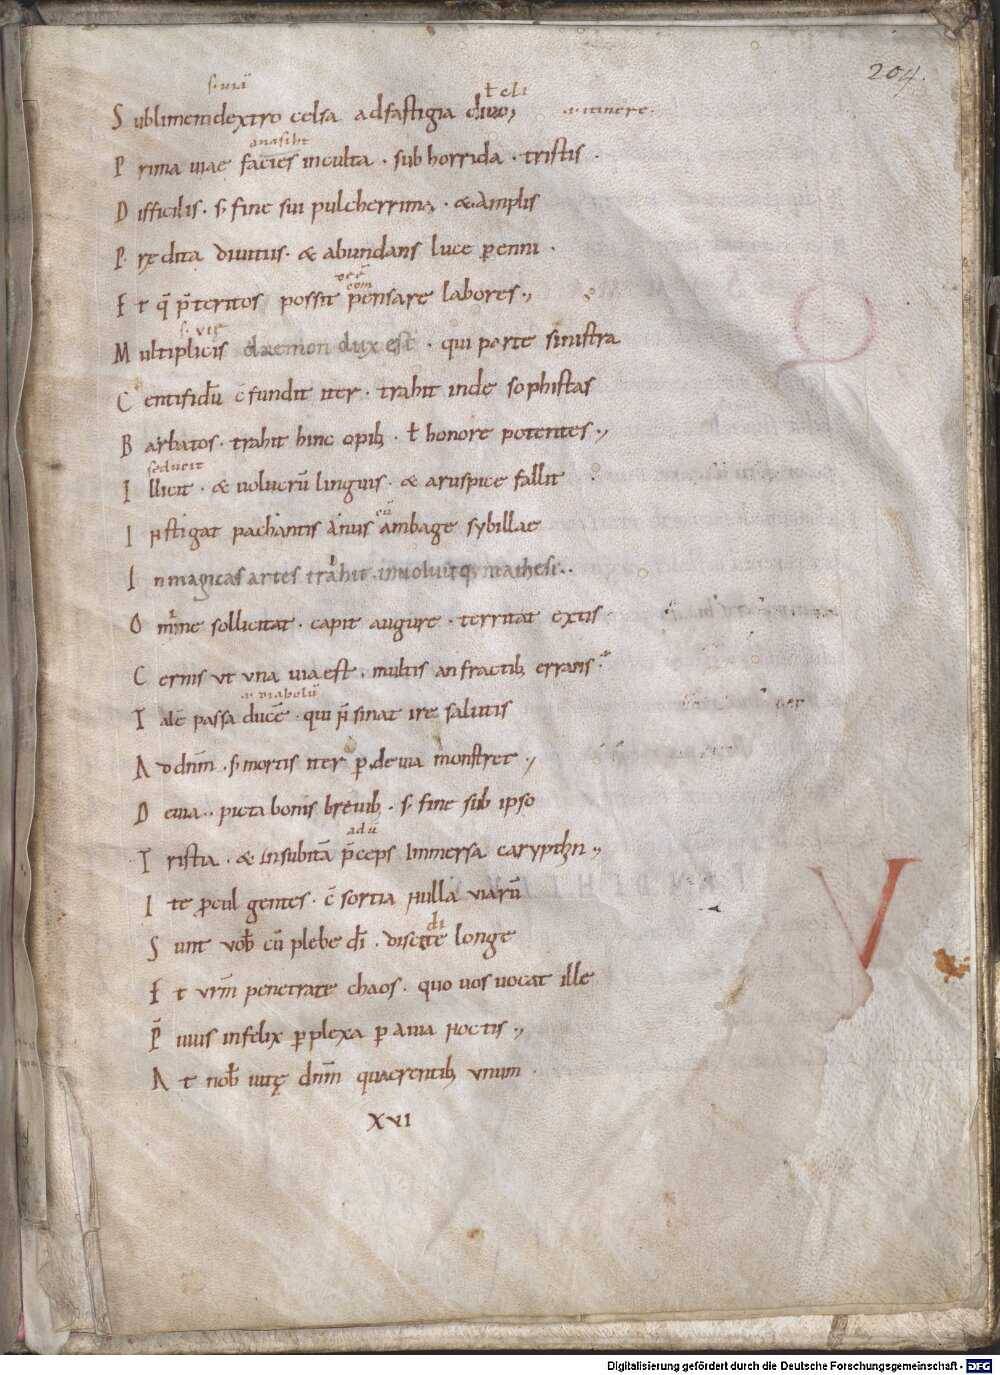 204.
s. uiā
ł eli
Sublimem dextro celsa ad fastigia cliuo; .i. itinere.
Prima uiae facies inculta . subhorrida . tristis .
Difficilis . s; fine sui pulcherrima . & amplis
Prędita diuitiis . & abundans luce pęnni .
Et q̄ p̄teritos possit pensare labores.,
s. uię
Multiplicis daemon dux est . qui parte sinistra
Centifidū c̄fundit iter . trahit inde sophistas
Barbatos . trahit hinc opib; . ł honore potentes.,
seducit
Illicit . & uolucrū linguis . & aruspice fallit
Instigat pachantis anus ambage sybillae
In magicas artes trahit . inuoluitq; mathesi..
Omine sollicitat . capit augure . territat extis
Cernis ut una uia est . multis anfractib; errans
.i. diabolū
Talē passa ducē . qui n̄ sinat ire salutis
Ad dn̄m . s; mortis iter p deuia monstret .,
Deuia .. picta bonis breuib; . s; fine sub ipso
Tristia . & insubitā p̄ceps immersa carypthin.,
Ite p̄cul gentes . c̄sortia nulla uiarū
Sunt uob̄ cū plebe dī . discite longe
Et urm̄ penetrate chaos . quo uos uocat ille
P̄uius infelix pplexa p auia noctis.,
At nob̄ uitę dn̄m quaerentib; unum .
XVI
V
Digitalisierung gefördert durch die Deutsche Forschungsgemeinschaft - DFG